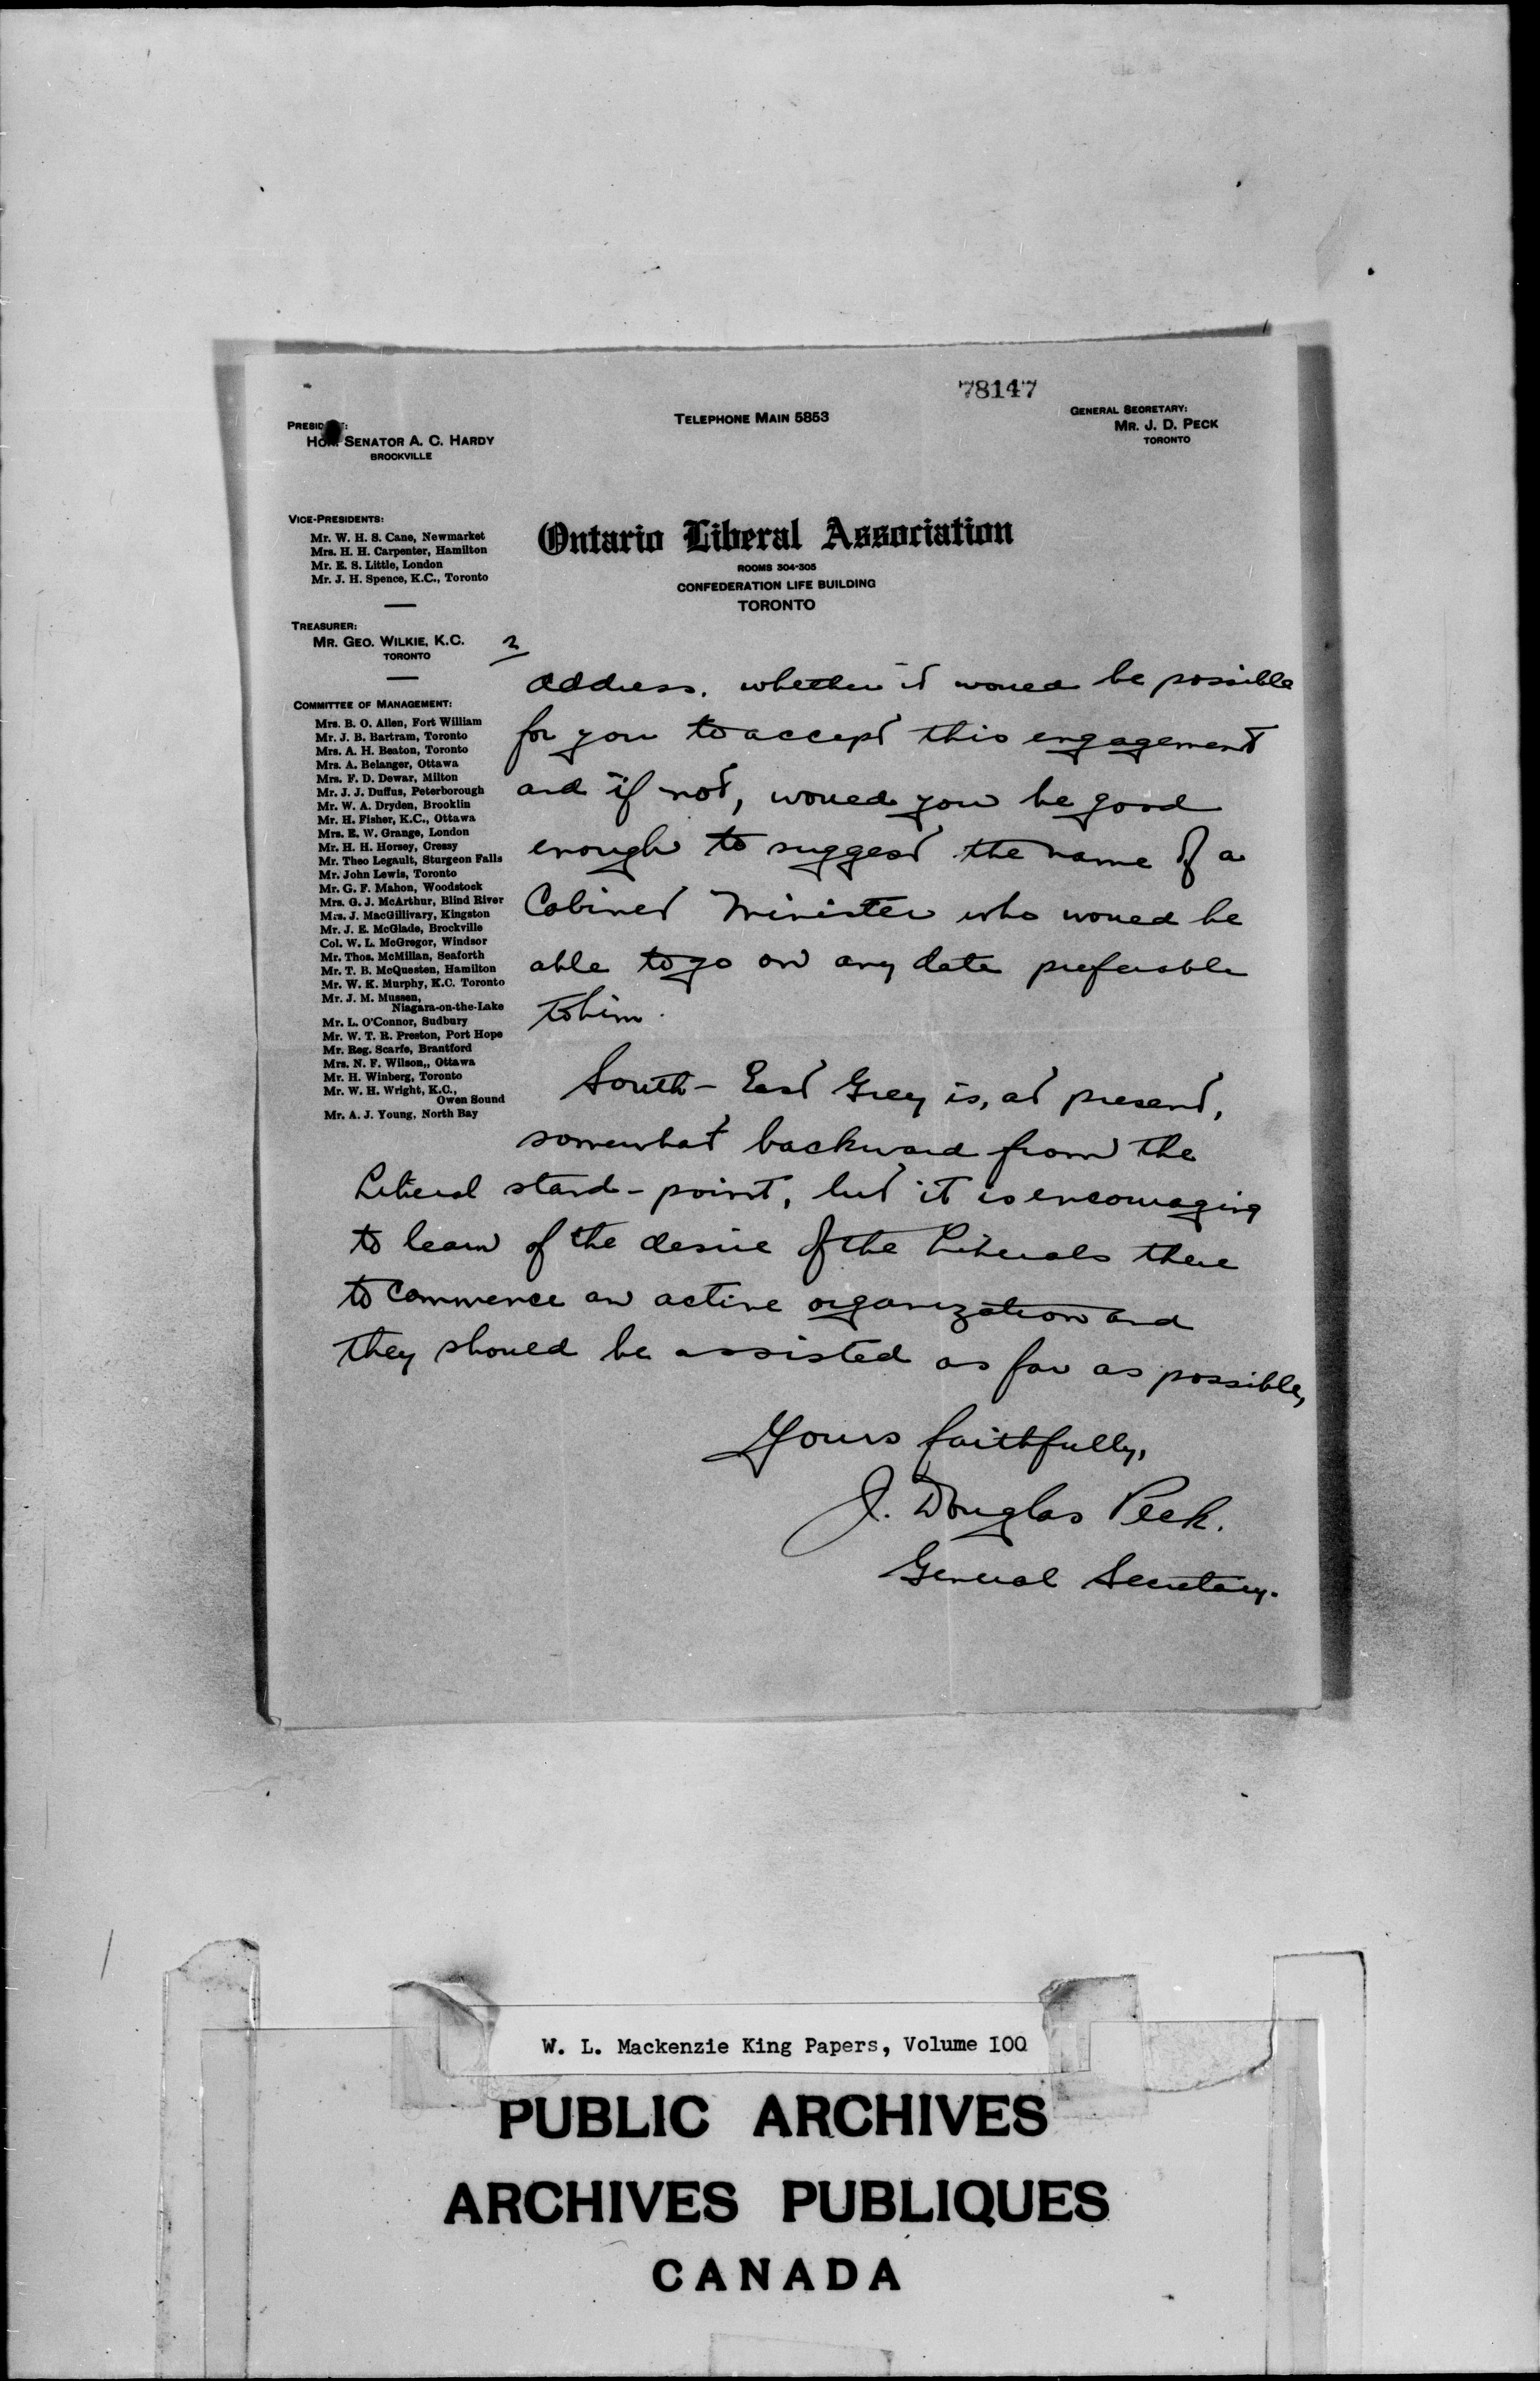 78147
PRESIDENT:
HON. SENATOR A. C. HARDY
BROCKVILLE
TELEPHONE MAIN 5853
GENERAL SECRETARY:
MR. J. D. PECK
TORONTO
VICE-PRESIDENTS:
Mr. W. H. S. Cane, Newmarket
Mrs. H. H. Carpenter, Hamilton
Mr. E. S. Little, London
Mr. J. H. Spence, K.C., Toronto
Ontario Liberal Association
ROOMS 304-305
CONFEDERATION LIFE BUILDING
TORONTO
TREASURER:
MR. GEO. WILKIE, K.C.
TORONTO
COMMITTEE OF MANAGEMENT:
Mrs. B. O. Allen, Fort William
Mr. J. B. Bartram, Toronto
Mrs. A. H. Beaton, Toronto
Mrs. A. Belanger, Ottawa
Mrs. F. D. Dewar, Milton
Mr. J. J. Duffus, Peterborough
Mr. W. A. Dryden, Brooklin
Mr. H. Fisher, K.C., Ottawa
Mrs. E. W. Grange, London
Mr. H. H. Horsey, Cressy
Mr. Theo Legault, Sturgeon Falls
Mr. John Lewis, Toronto
Mr. G. F. Mahon, Woodstock
Mrs. G. J. McArthur, Blind River
Mrs. J. MacGillivary, Kingston
Mr. J. E. McGlade, Brockville
Col. W. L. McGregor, Windsor
Mr. Thos. McMillan, Seaforth
Mr. T. B. McQuesten, Hamilton
Mr. W. K. Murphy, K.C. Toronto
Mr. J. M. Mussen,
Niagara-on-the-Lake
Mr. L. O'Connor, Sudbury
Mr. W. T. R. Preston, Port Hope
Mr. Reg. Scarfe, Brantford
Mrs. N. F. Wilson,, Ottawa
Mr. H. Winberg, Toronto
Mr. W. H. Wright, K.C.,
Owen Sound
Mr. A. J. Young, North Bay
2
address. whether it would be possible
for you to accept this engagement
and if not, would you be good
enough to suggest the name of a
Cabinet Minister who would be
able to go on any date preferable
to him.
South-East Grey is, at present,
somewhat backward from the
Liberal stand-point, but it is encouraging
to learn of the desire of the Liberals there
to commence an active organization and
they should be assisted as far as possible,
Yours faithfully,
J. Douglas Peck.
General Secretary.
W. L. Mackenzie King Papers, Volume 100
PUBLIC ARCHIVES
ARCHIVES PUBLIQUES
CANADA